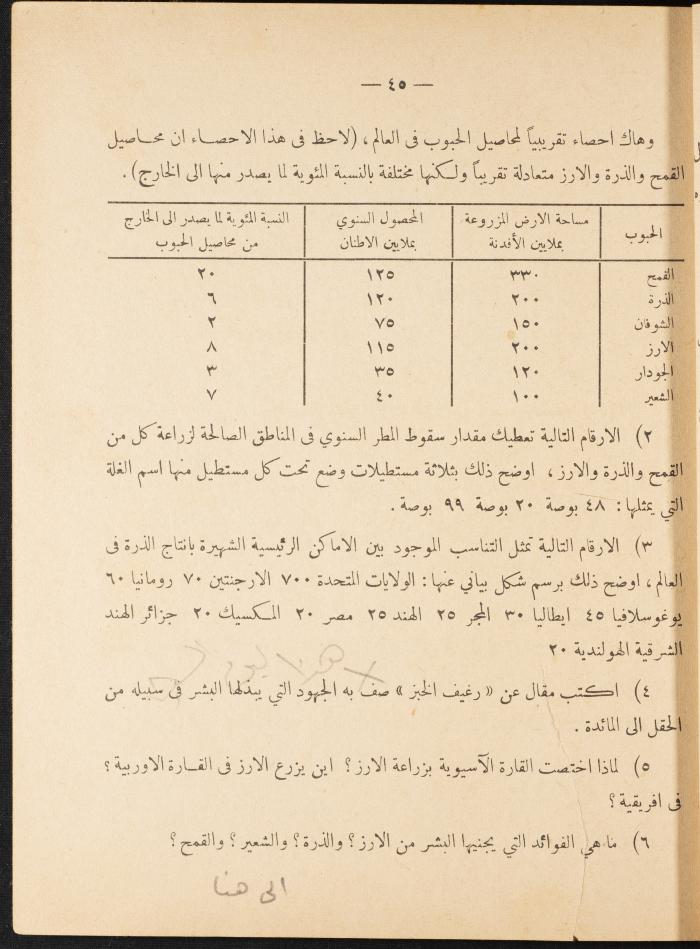 — ٤٥ —
وهاك احصاء تقريبياً لمحاصيل الحبوب فى العالم ، (لاحظ فى هذا الاحصاء ان محاصيل
القمح والذرة والارز متعادلة تقريباً ولكنها مختلفة بالنسبة المئوية لما يصدر منها الى الخارج) .
الحبوب | مساحة الارض المزروعة بملايين الأفدنة | المحصول السنوي بملايين الاطنان | النسبة المئوية لما يصدر الى الخارج من محاصيل الحبوب
القمح | ٣٣٠ | ١٢٥ | ٢٠
الذرة | ٢٠٠ | ١٢٠ | ٦
الشوفان | ١٥٠ | ٧٥ | ٢
الارز | ٢٠٠ | ١١٥ | ٨
الجودار | ١٢٠ | ٣٥ | ٣
الشعير | ١٠٠ | ٤٠ | ٧
٢) الارقام التالية تعطيك مقدار سقوط المطر السنوي فى المناطق الصالحة لزراعة كل من
القمح والذرة والارز ، اوضح ذلك بثلاثة مستطيلات وضع تحت كل مستطيل منها اسم الغلة
التي يمثلها : ٤٨ بوصة ٢٠ بوصة ٩٩ بوصة .
٣) الارقام التالية تمثل التناسب الموجود بين الاماكن الرئيسية الشهيرة بانتاج الذرة فى
العالم ، اوضح ذلك برسم شكل بياني عنها : الولايات المتحدة ٧٠٠ الارجنتين ٧٠ رومانيا ٦٠
يوغوسلافيا ٤٥ ايطاليا ٣٠ المجر ٢٥ الهند ٢٥ مصر ٢٠ المكسيك ٢٠ جزائر الهند
الشرقية الهولندية ٢٠
٤) اكتب مقال عن « رغيف الخبز » صف به الجهود التي يبذلها البشر فى سبيله من
الحقل الى المائدة .
٥) لماذا اختصت القارة الآسيوية بزراعة الارز ؟ اين يزرع الارز فى القارة الاوربية ؟
فى افريقية ؟
٦) ما هي الفوائد التي يجنيها البشر من الارز ؟ والذرة ؟ والشعير ؟ والقمح ؟
الى هنا